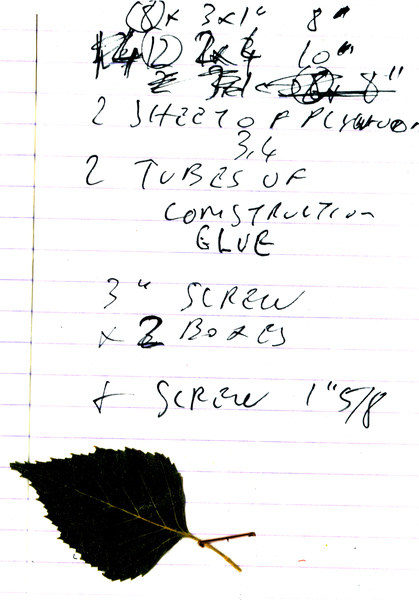 (8) x 3x1" 8"
(12) 2x4 10"
2 SHEET OF PLYWOOD
3,4
2 TUBES OF
CONSTRUCTION
GLUE
3" SCREW
x 2 BOXES
+ SCREW 1"5/8